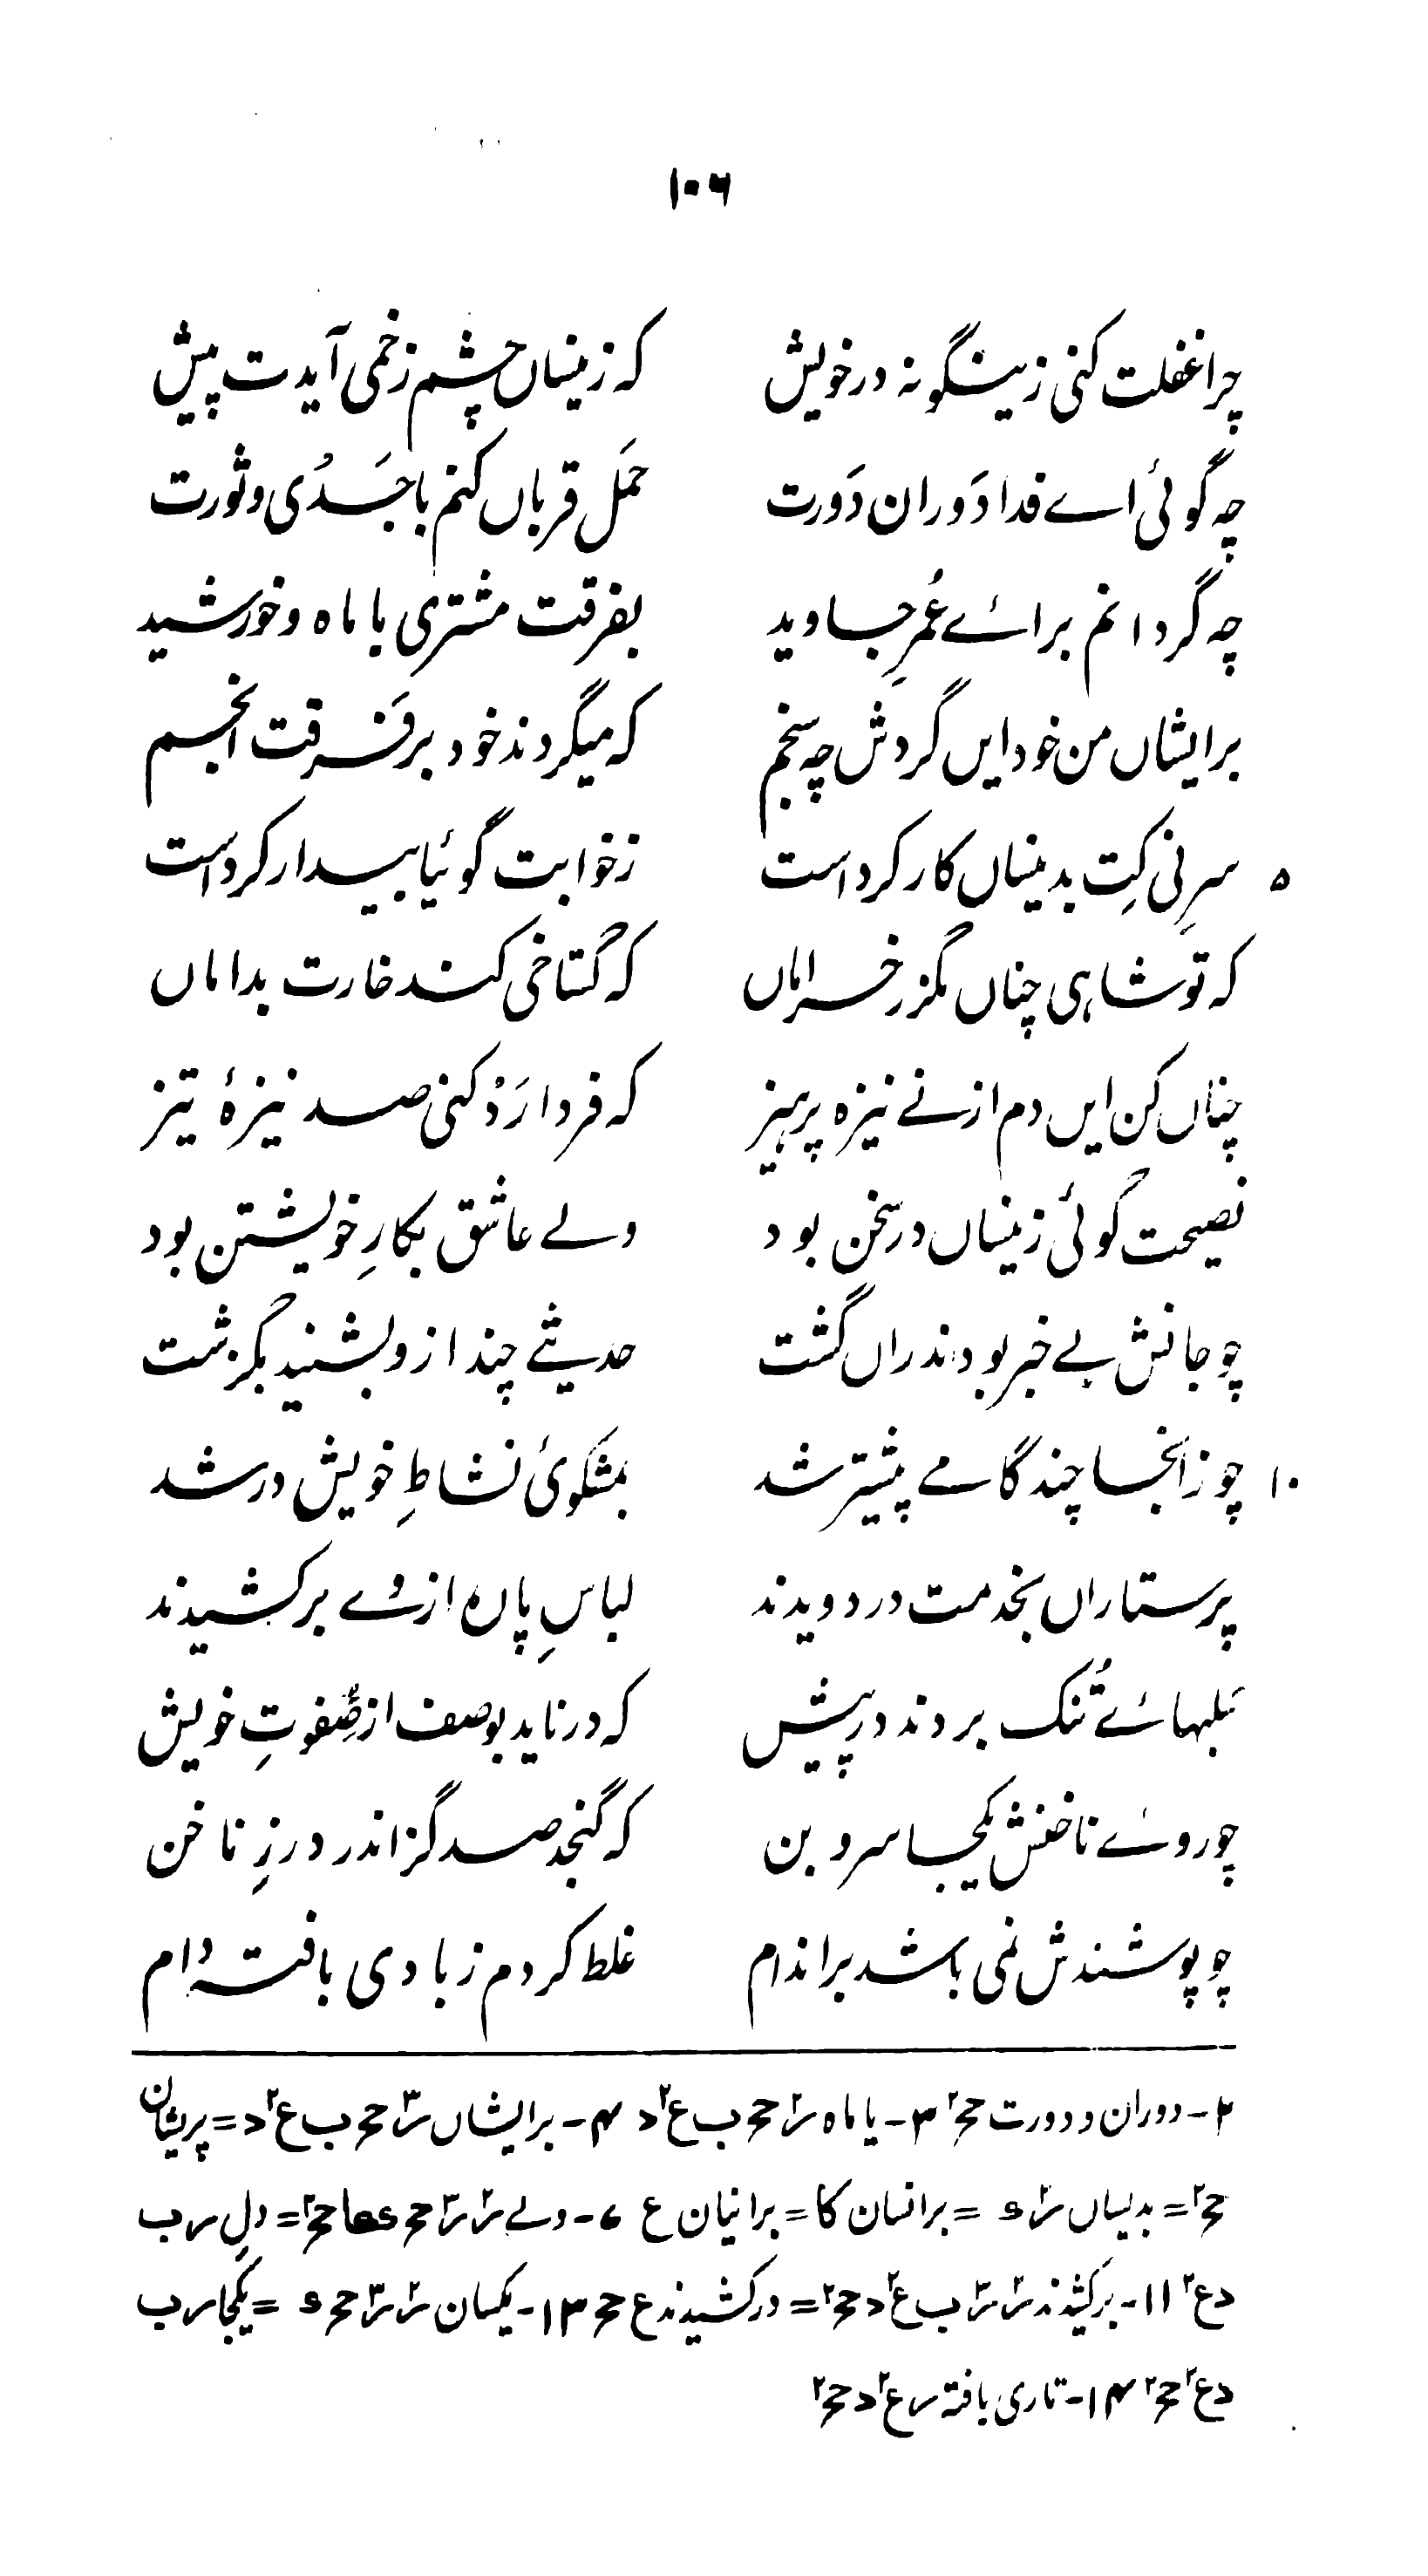 ۱۰۶
چرا غفلت کنی زینگونه در خویش که زینساں چشم زخمی آیدت پیش
چہ گوئی اے فدا دَوران دَورت حَمَل قرباں کنم با جَدْی و ثورت
چہ گردانم برائے عُمرِ جاوید بفرقت مشتری با ماہ و خورشید
برایشاں من خود ایں گردش چہ سنجم که میگردند خود بر فَرقت انجم
۵ سرِ نی کِت بدینساں کار کرد است ز خوابت گوئیا بیدار کرد است
که تو شاہی چناں مگزر خراماں که گستاخی کند خارت بداماں
چناں کن ایں دم از نے نیزہ پرہیز که فردا رَدْ کنی صد نیزۂ تیز
نصیحت گوئی زینساں در سخن بود ولے عاشق بکارِ خویشتن بود
چو جانش بے خبر بود اندراں گشت حدیثے چند ازو بشنید بگزشت
۱۰ چو زانجا چند گامے پیشتر شد بمشکوئ نشاطِ خویش در شد
پرستاراں بخدمت در دویدند لباسِ پارہ از وے برکشیدند
سَلبهائے تُنک بردند در پیش که در ناید بوصف از صِفوتِ خویش
چو روئے ناخنش یکجا سر و بن که گنجد صد گز اندر درزِ ناخن
چو پوشندش نمی باشد بر اندام غلط کردم ز بادی بافته دام
۲- دوران و دورت حج۲ ۳- یا ماہ ب ع۲ د ۴- برایشاں ب ع۲ د = پریشان
حج۲ = بدلیساں = برانسان کا = برانیان ع ۷- ولے = دلِ ب
د ع۲ ۱۱- برکشیدند ب ع۲ د حج۲ = درکشیدند ع حج ۱۳- یکسان = یکجا ب
د ع۲ حج۲ ۱۴- تاری بافته ع۲ د حج۲